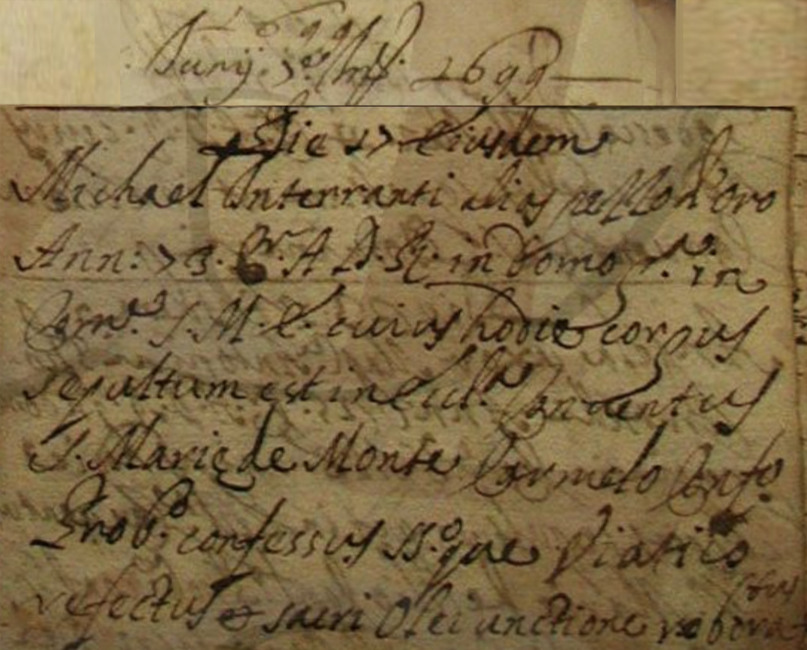 Junij 7e Ind. 1699
Die 27 eiusdem
Michael Interranti alias pellod'oro
Ann: 73. Cr. A. D. R. in domo pa. in
Com.e S. M. E. cuius hodie corpus
sepultum est in Eccl.a Conventus
S. Marie de Monte Carmelo Conf.o
Prob.o confessus SS.o que Viatico
refectus & sacri Olei unctione robora
tus